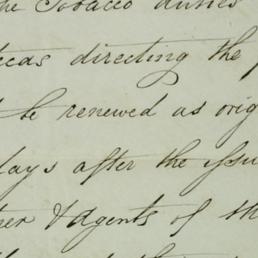 the Tobacco duties
directing the
be renewed as orig
days after the issu
& agents of th